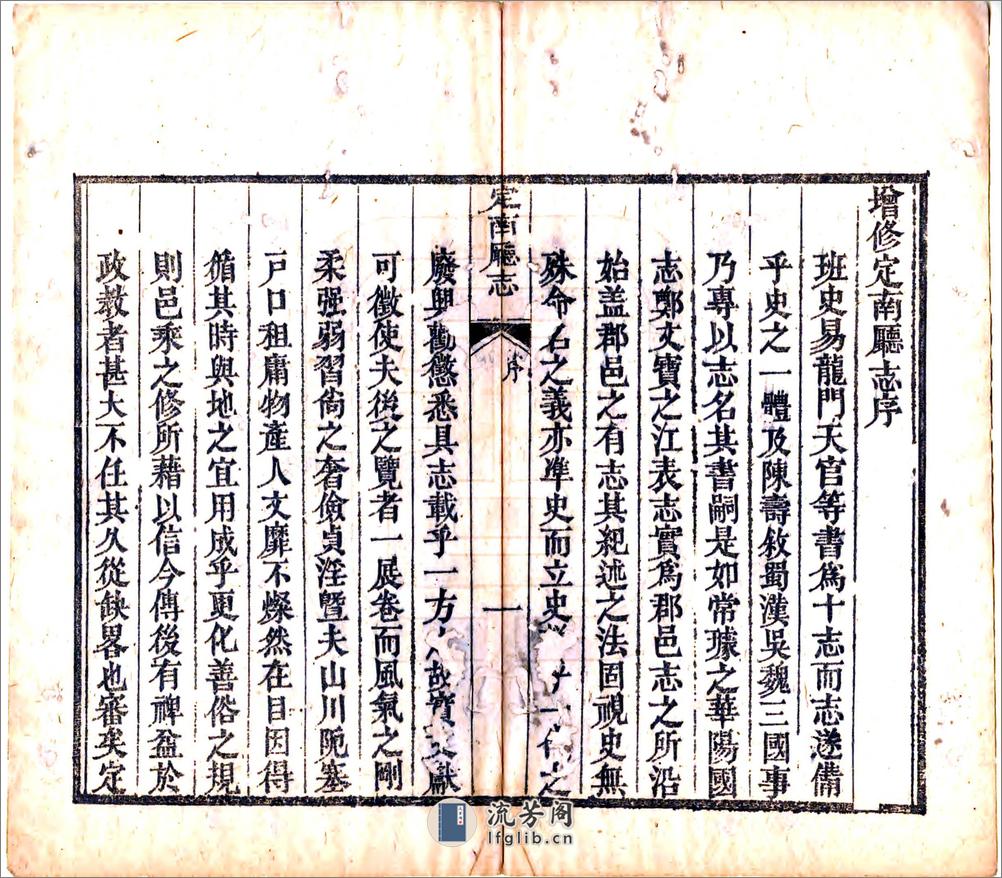 增修定南廳志序
班史易龍門天官等書爲十志而志遂備
乎史之一體及陳壽敘蜀漢吳魏三國事
乃專以志名其書嗣是如常璩之華陽國
志鄭文寶之江表志實爲郡邑志之所沿
始盖郡邑之有志其紀述之法固視史無
殊命名之義亦凖史而立史一之
定南廳志
序
一
廢興勸懲悉具志載乎一方故實文獻
可徵使夫後之覽者一展卷而風氣之剛
柔强弱習尙之奢儉貞淫曁夫山川阨塞
戸口租庸物產人文靡不燦然在目因得
循其時與地之宜用成乎更化善俗之規
則邑乘之修所藉以信今傳後有裨益於
政教者甚大不任其久從缺畧也審矣定
流芳阁
lfglib.cn